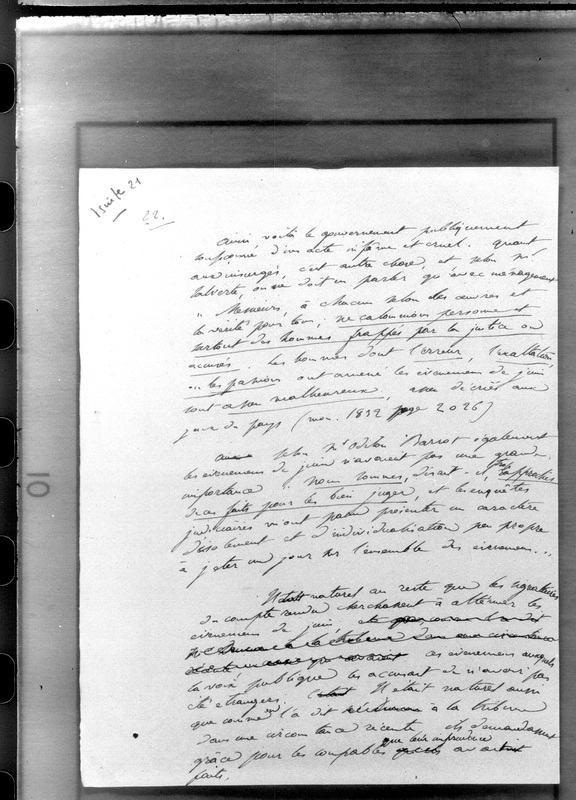 Suite 21
22.
ainsi voilà le gouvernement publiquement
soupçonné d'un acte infame et cruel. quant
aux insurgés, c'est autre chose, et selon Mr
Laberte, on ne doit en parler qu'avec ménagement
" Messieurs, à chacun selon ses œuvres et
la vérité pour tous, ne calomnions personne et
surtout des hommes frappés par la justice ou
accusés. Les hommes dont l'erreur, l'exaltation,
ou les passions ont amené les évènemens de juin
sont assez malheureux, assez décriés aux
yeux du pays (mon. 1832 page 2026)
selon Mr Odilon Barrot également
les évènemens de juin n'avaient pas une grande
importance. Nous sommes, disait-il, trop rapprochés
de ces faits pour les bien juger, et les enquêtes
judiciaires m'ont paru présenter un caractère
d'isolement et d'individualisation peu propre
à jeter un jour sur l'ensemble des évènemens...
Il était naturel au reste que les signataires
du compte rendu cherchassent à atténuer les
évènemens de juin,
ces évènemens auxquels
la voix publique les accusait de n'avoir pas
été étrangers. Il était naturel aussi
que comme on l'a dit à la tribune
dans une circonstance récente, ils demandassent
grâce pour les coupables que leur imprudence avait
faits.